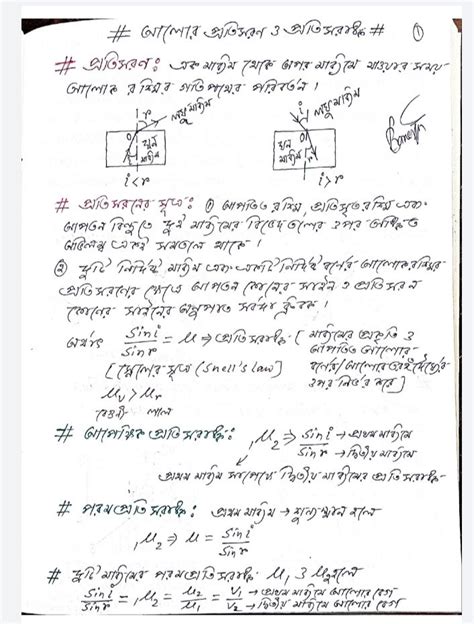 # আলোর প্রতিসরণ ও প্রতিসরাঙ্ক # ①
# প্রতিসরণ: এক মাধ্যম থেকে অপর মাধ্যমে যাওয়ার সময়
আলোক রশ্মির গতিপথের পরিবর্তন।
i r লঘু মাধ্যম i লঘু মাধ্যম
O ঘন মাধ্যম O ঘন মাধ্যম r
i < r i > r
# প্রতিসরণের সূত্র: ① আপতিত রশ্মি, প্রতিসৃত রশ্মি এবং
আপতন বিন্দুতে দুই মাধ্যমের বিভেদতলের উপর অঙ্কিত
অভিলম্ব একই সমতলে থাকে।
② দুটি নির্দিষ্ট মাধ্যম এবং একটি নির্দিষ্ট বর্ণের আলোকরশ্মির
প্রতিসরণের ক্ষেত্রে আপতন কোণের সাইন ও প্রতিসরণ
কোণের সাইনের অনুপাত সর্বদা ধ্রুবক।
অর্থাৎ Sin i / Sin r = μ ⇒ প্রতিসরাঙ্ক [ মাধ্যমের প্রকৃতি ও
আপতিত আলোর
[স্নেলের সূত্র (Snell's Law) বর্ণের/আলোর তরঙ্গদৈর্ঘ্যের
উপর নির্ভর করে]
μv > μr
বেগুনী লাল
# আপেক্ষিক প্রতিসরাঙ্ক: ₁μ₂ ⇒ Sin i → প্রথম মাধ্যমে
Sin r → দ্বিতীয় মাধ্যমে
প্রথম মাধ্যম সাপেক্ষে দ্বিতীয় মাধ্যমের প্রতিসরাঙ্ক
# পরম প্রতিসরাঙ্ক: প্রথম মাধ্যম → শূন্যস্থান হলে
₁μ₂ ⇒ μ = Sin i / Sin r
# দুটি মাধ্যমের পরম প্রতিসরাঙ্ক μ₁ ও μ₂ হলে
Sin i / Sin r = ₁μ₂ = μ₂ / μ₁ = V₁ / V₂ → প্রথম মাধ্যমে আলোর বেগ
→ দ্বিতীয় মাধ্যমে আলোর বেগ